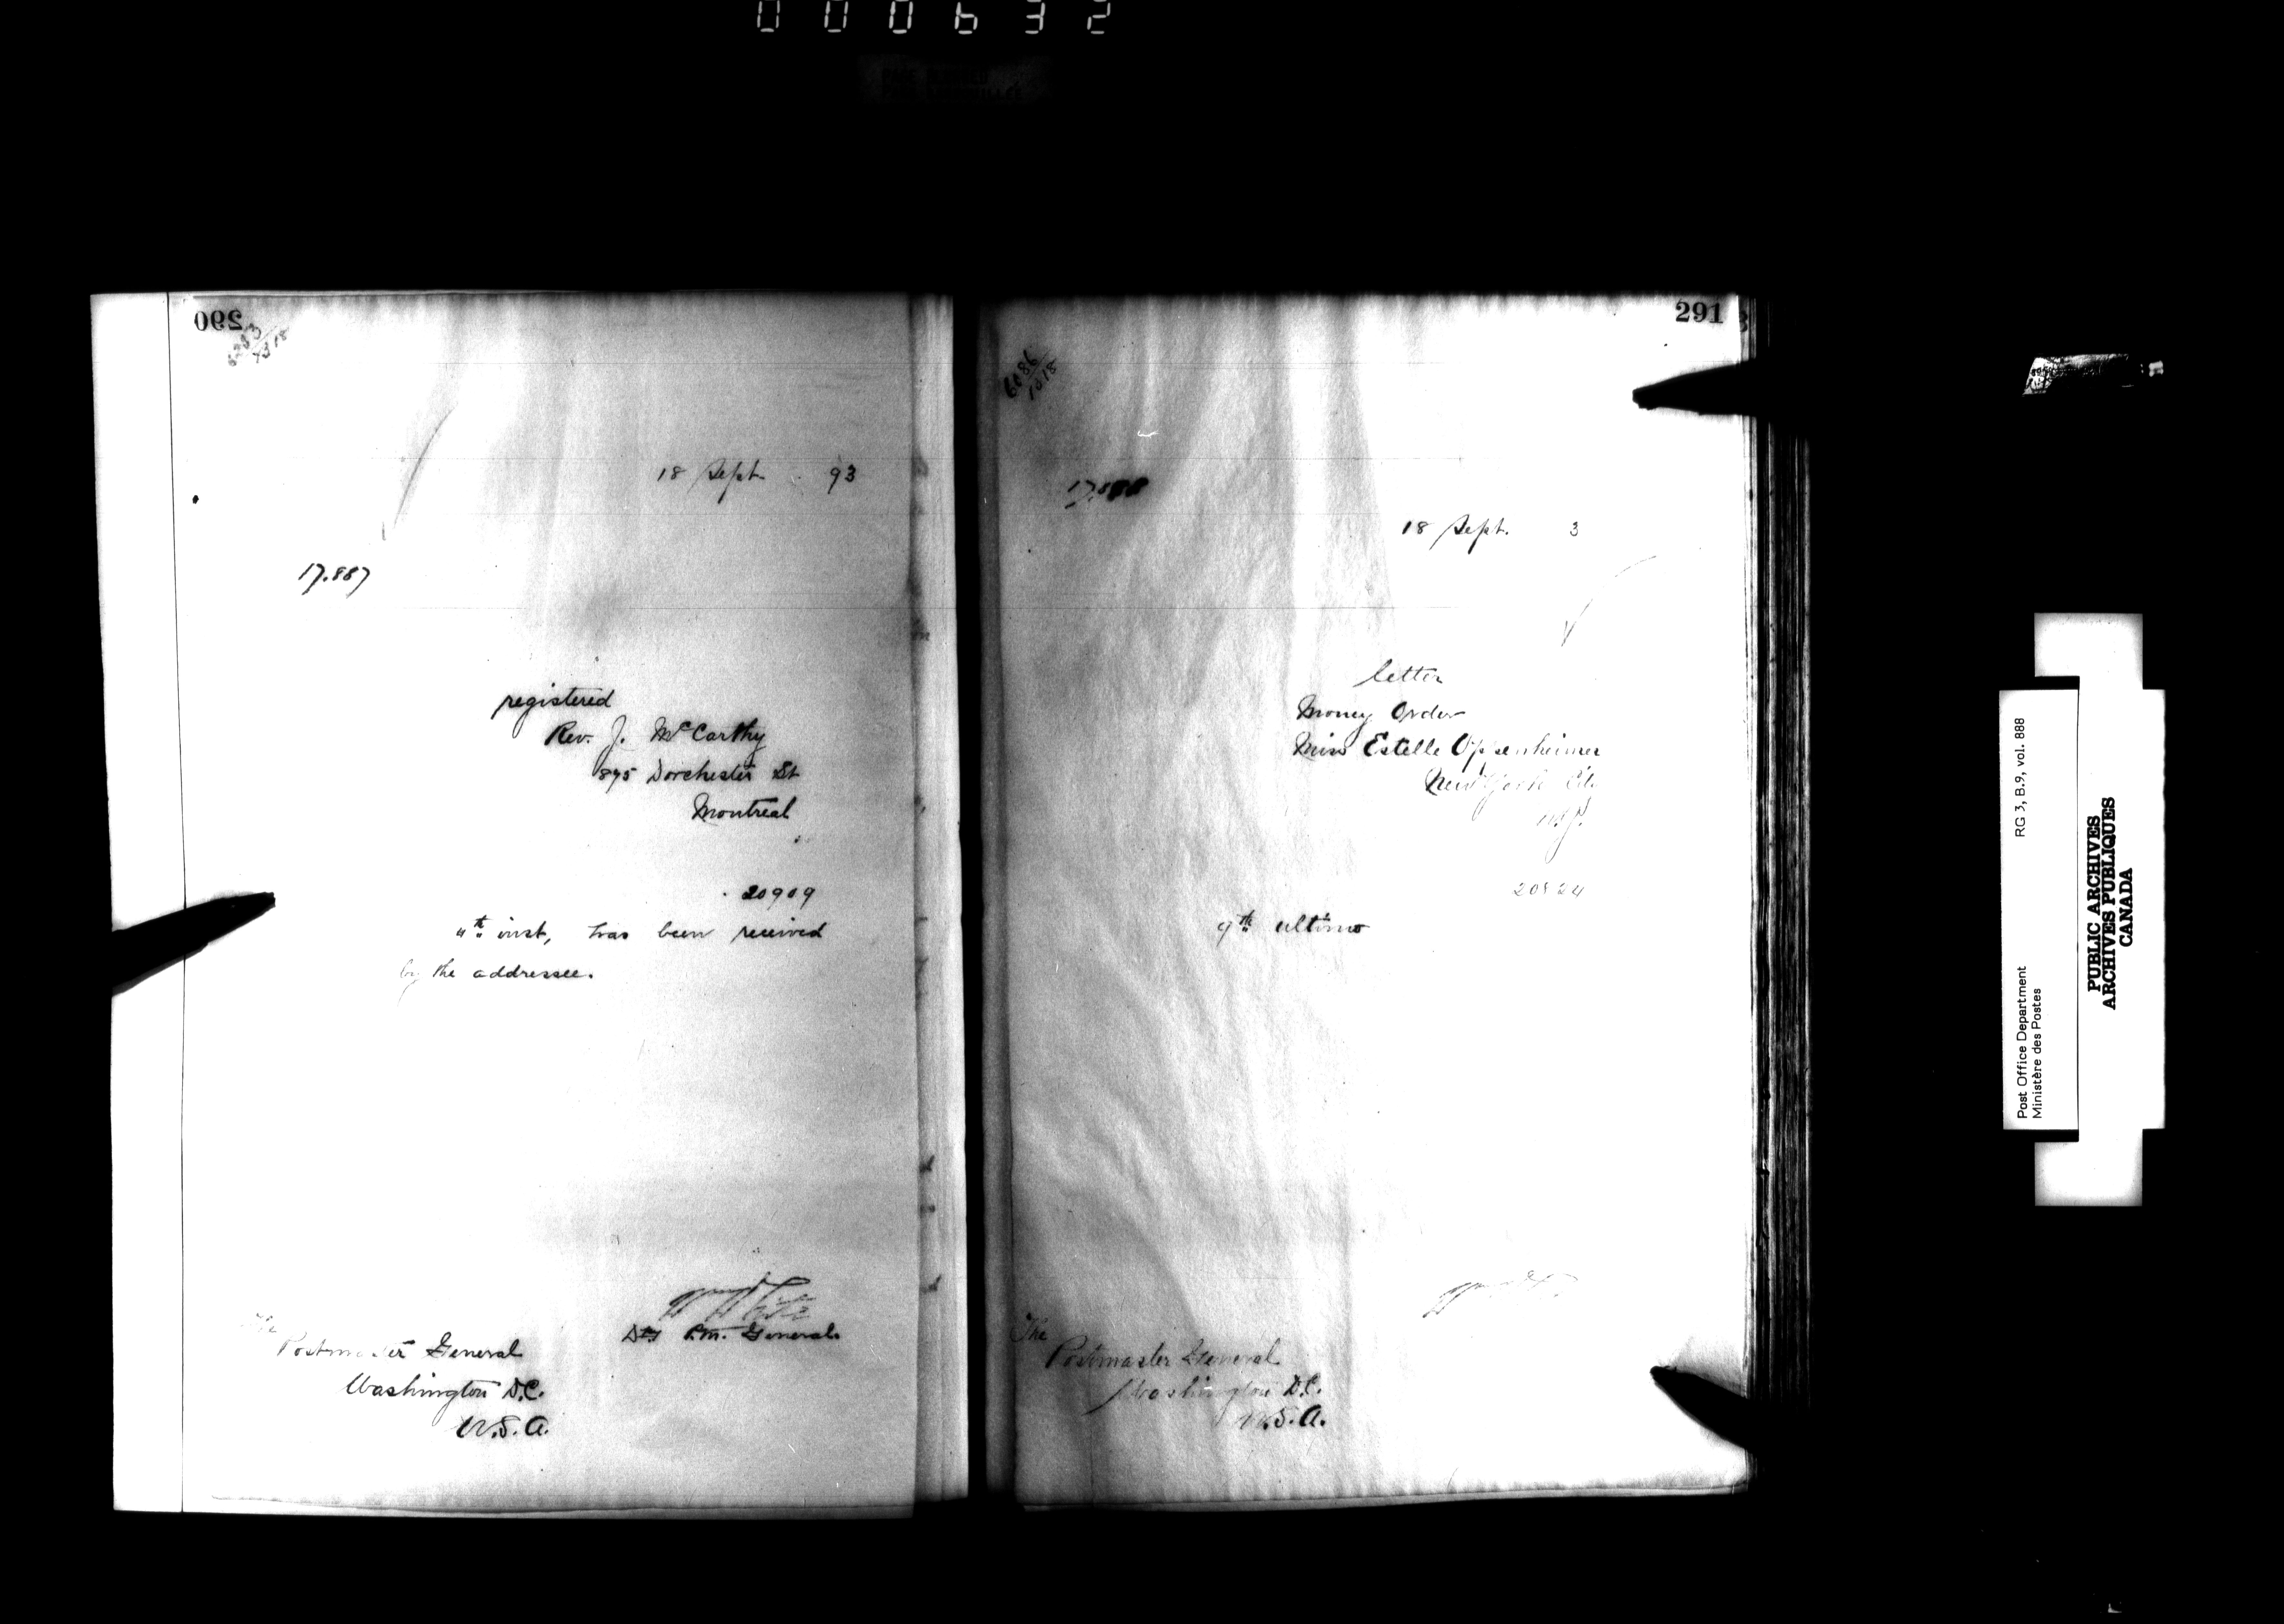 000632
290
18 Sept. 93
17.887
registered
Rev. J. McCarthy
875 Dorchester St
Montreal
20909
4th inst, has been received
by the addressee.
Dty P.M. General.
The
Postmaster General
Washington D.C.
U.S.A.
291
6086/1018
17.888
18 Sept. 3
letter
Money Order
Miss Estelle Oppenheimer
New York City
N.Y.
20824
9th ultimo
The
Postmaster General
Washington D.C.
U.S.A.
Post Office Department RG 3, B.9, vol. 888
Ministère des Postes
PUBLIC ARCHIVES
ARCHIVES PUBLIQUES
CANADA